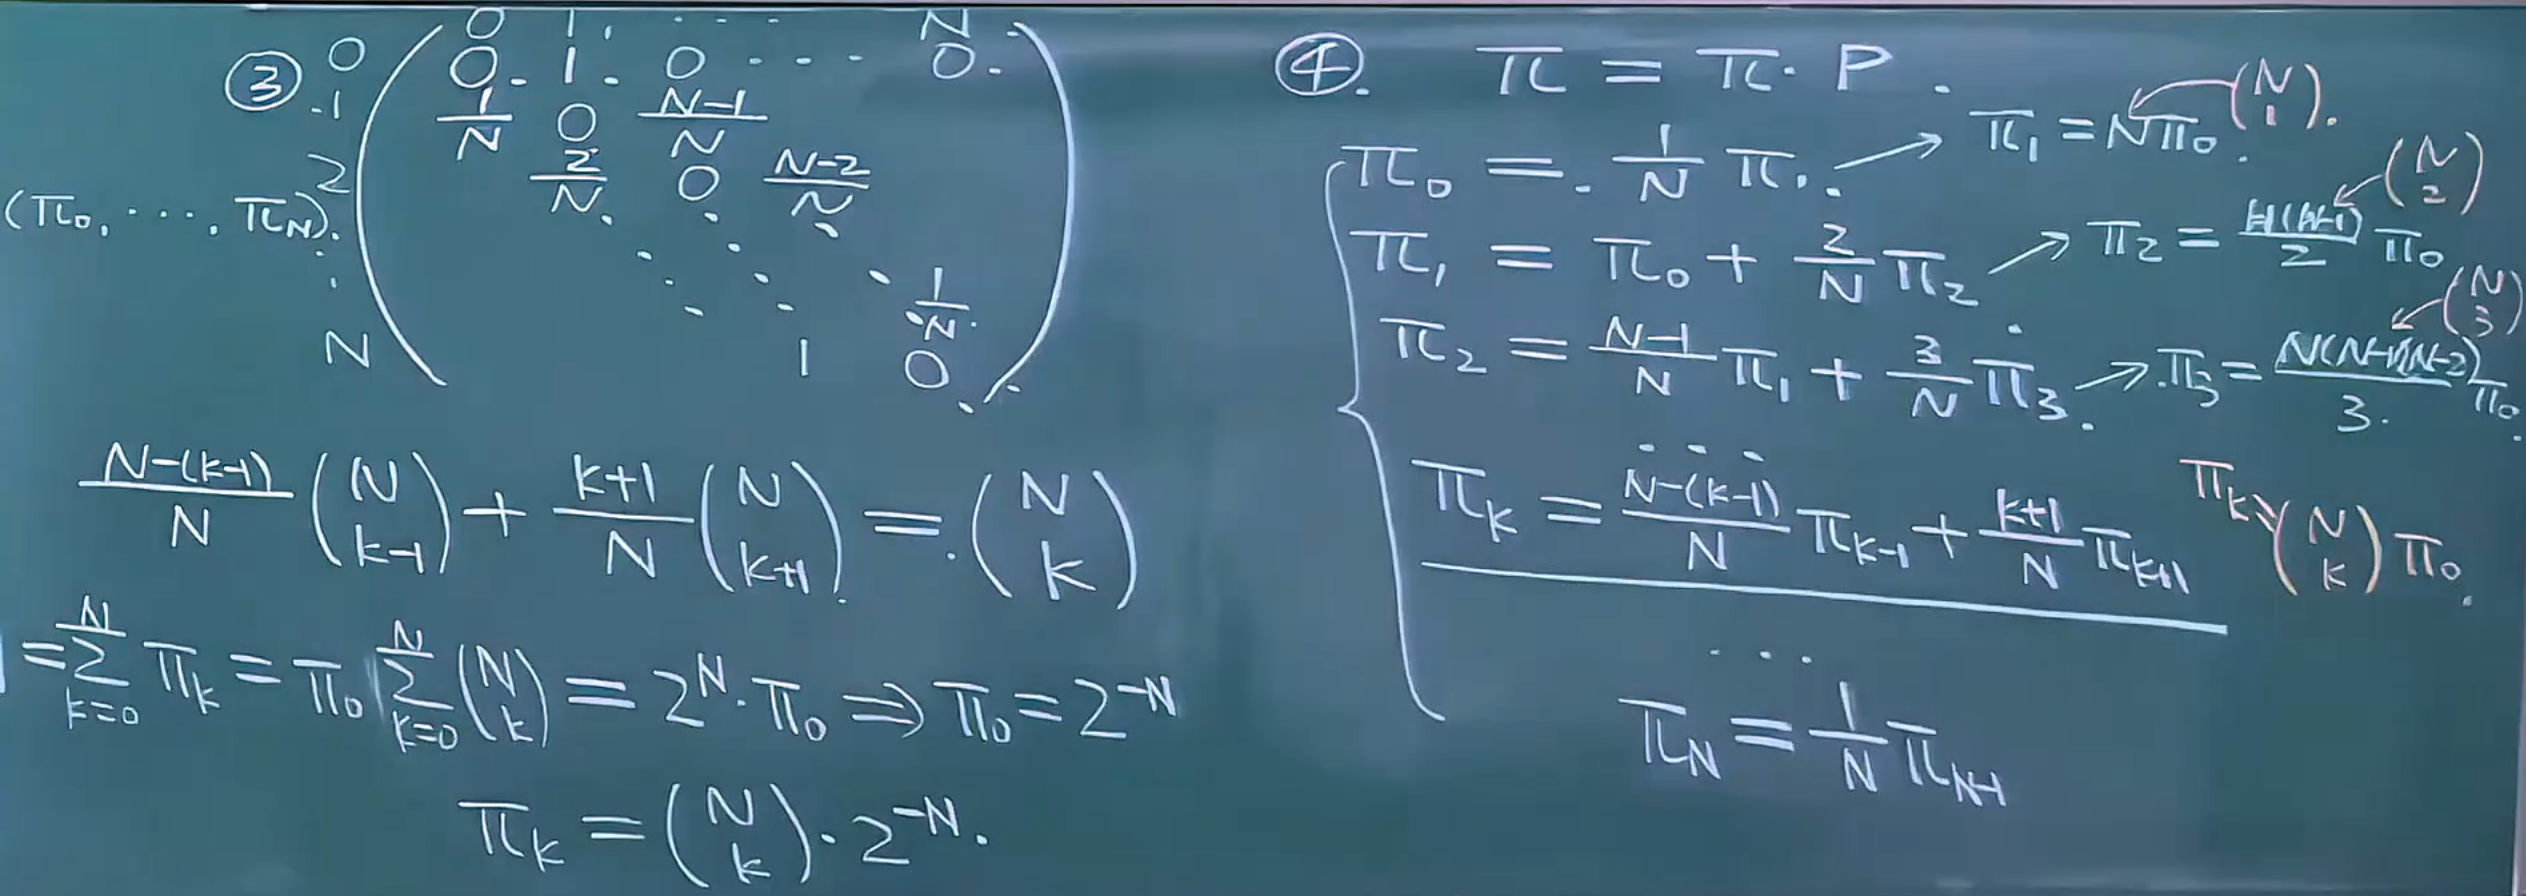 ③
0 1 . . . . N
0 0 1 0 . . . 0
1 1/N 0 (N-1)/N
2 2/N 0 (N-2)/N
(π₀, ⋯, π_N) ⋱ ⋱ ⋱ 1/N
N 1 0
(N-(k-1))/N (N k-1) + (k+1)/N (N k+1) = (N k)
1 = Σ_{k=0}^{N} π_k = π₀ Σ_{k=0}^{N} (N k) = 2^N · π₀ ⇒ π₀ = 2^{-N}
π_k = (N k) · 2^{-N}.
④. π = π · P.
π₀ = 1/N π₁. → π₁ = Nπ₀. (N 1).
π₁ = π₀ + 2/N π₂ → π₂ = N(N-1)/2 π₀ (N 2)
π₂ = (N-1)/N π₁ + 3/N π₃. → π₃ = N(N-1)(N-2)/3. π₀. (N 3)
. . .
π_k = (N-(k-1))/N π_{k-1} + (k+1)/N π_{k+1} π_k = (N k) π₀.
. . . .
π_N = 1/N π_{N-1}